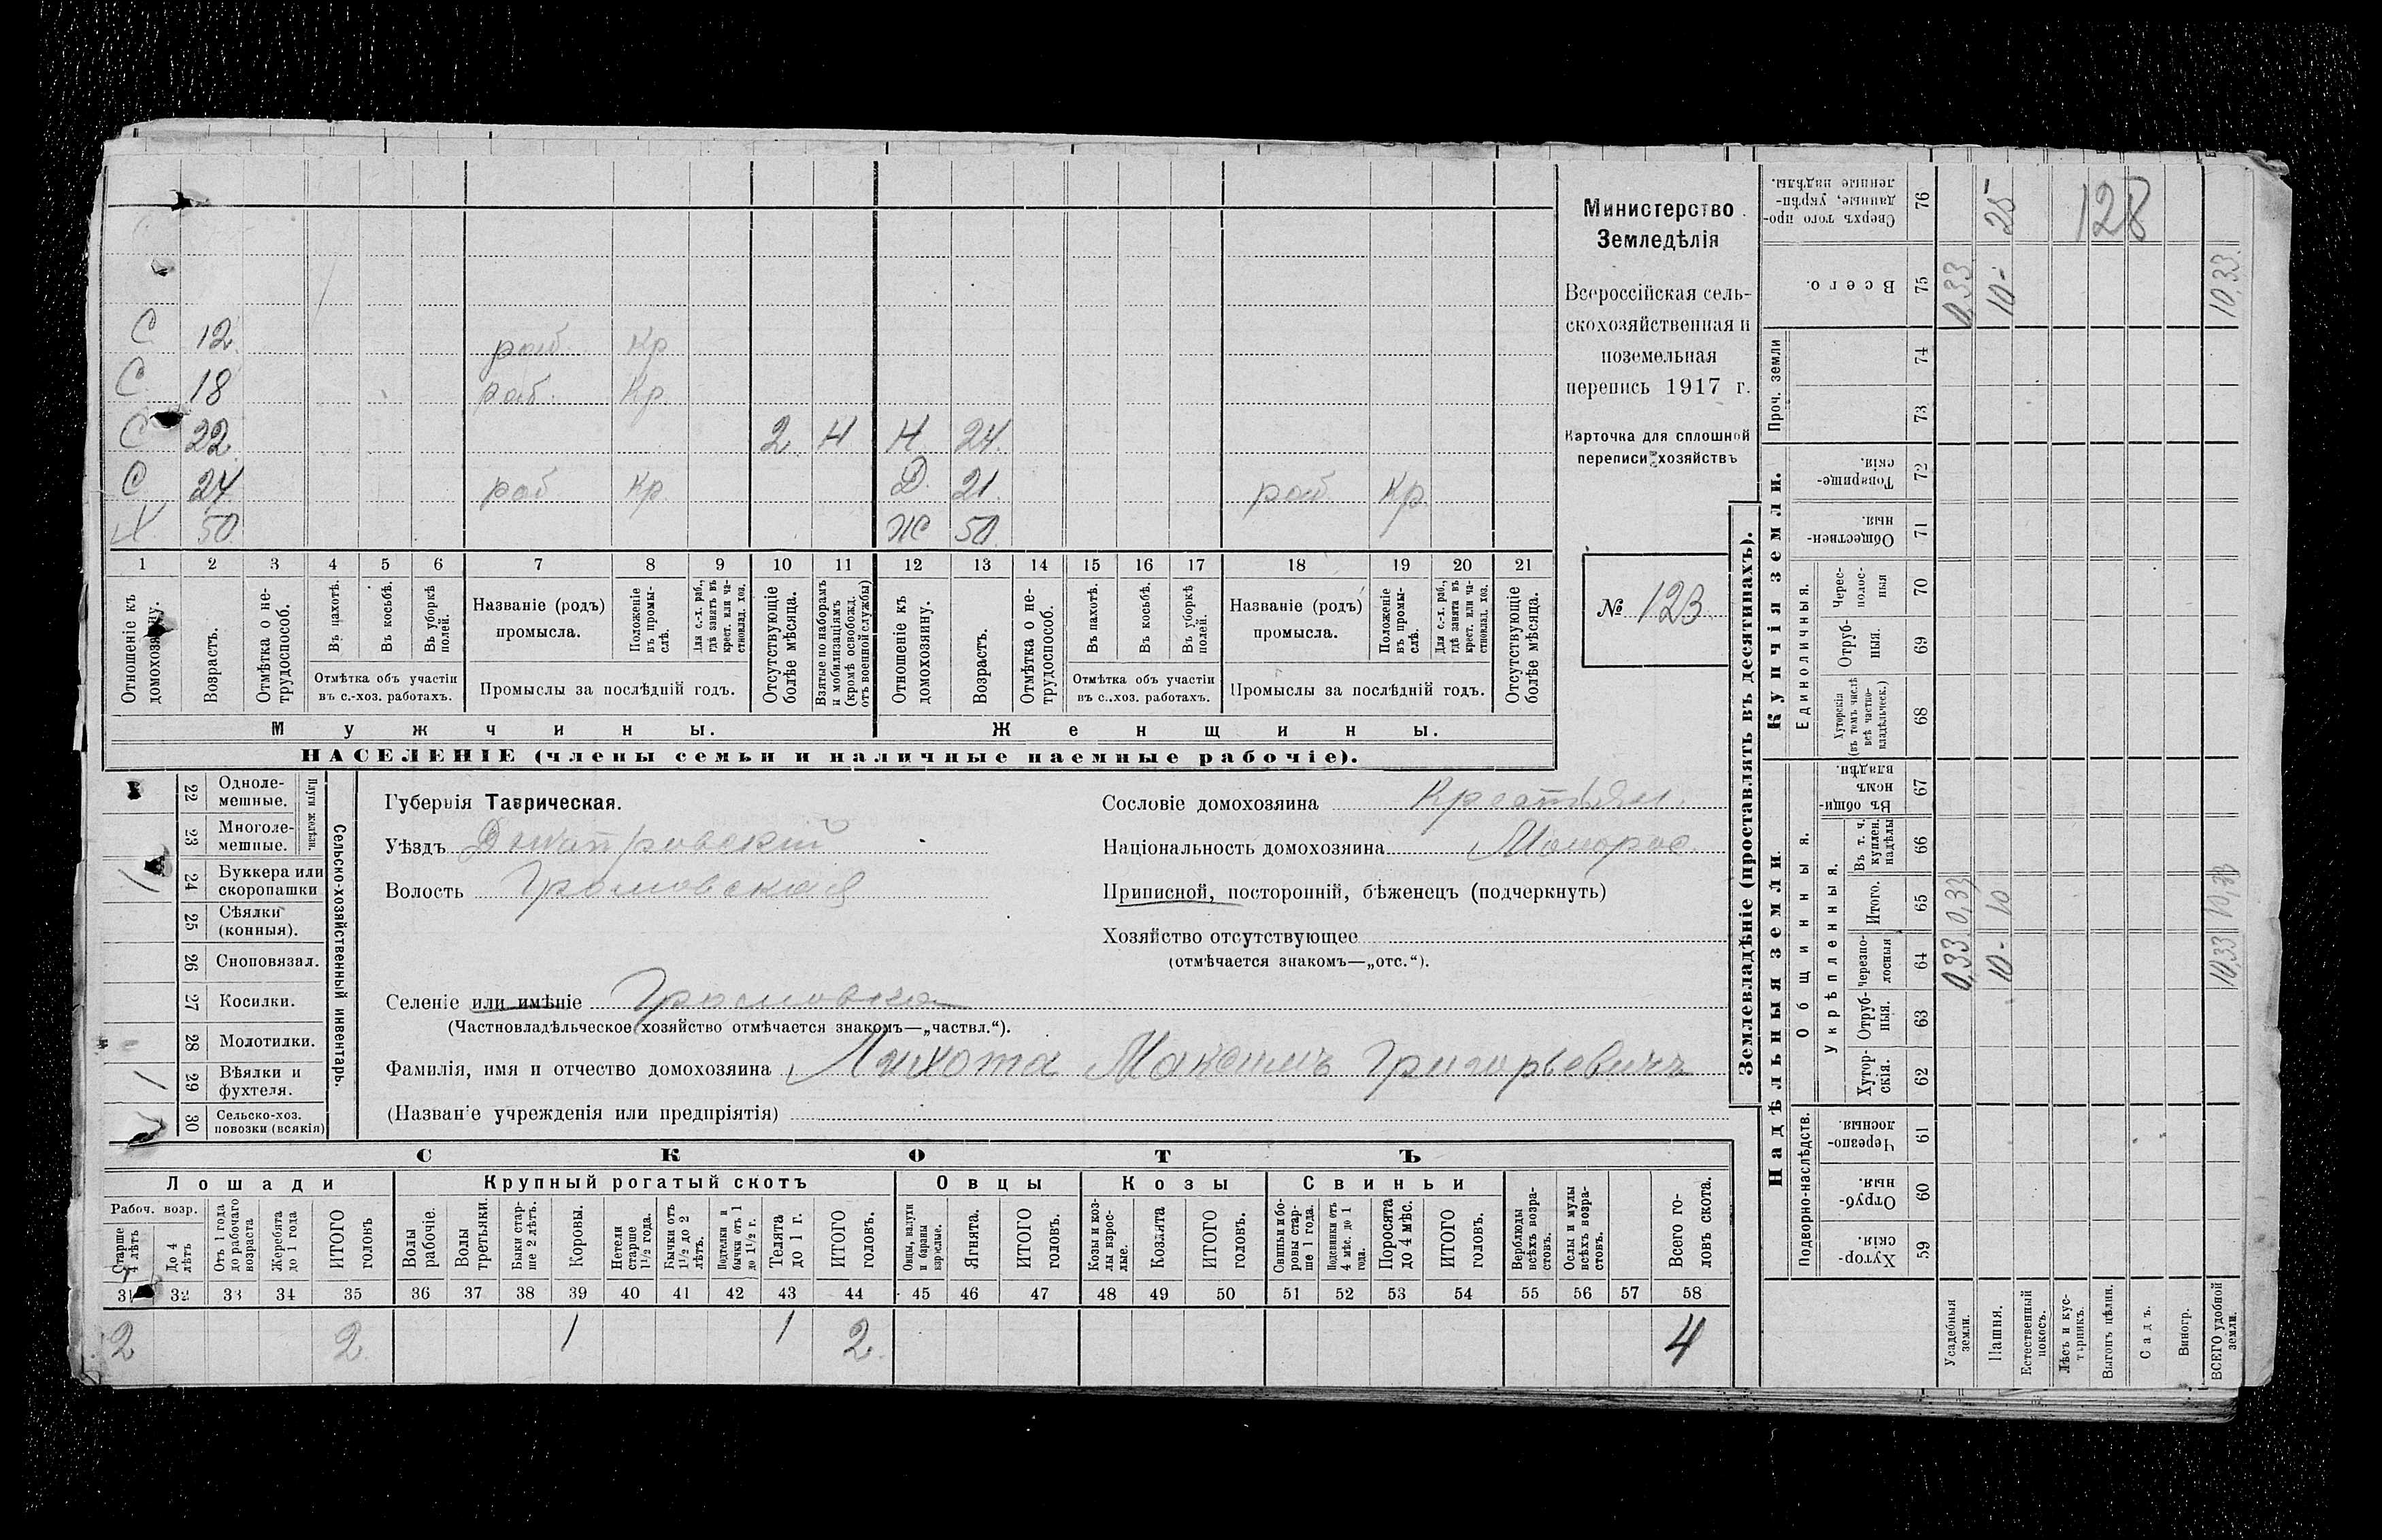 С 12 раб. Кр
С 18 раб. Кр.
С 22 2 Н Н. 24
С 24 раб Кр. Д. 21 раб. Кр
Х 50 Ж 50
1 2 3 4 5 6 7 8 9 10 11 12 13 14 15 16 17 18 19 20 21
Отношеніе къ домохозяину.
Возрастъ.
Отмѣтка о нетрудоспособ.
Въ пахотѣ.
Въ косьбѣ.
Въ уборкѣ полей.
Отмѣтка объ участіи въ с.-хоз. работахъ.
Названіе (родъ) промысла.
Положеніе въ промыслѣ.
Для с.-х. раб., гдѣ занятъ въ крест. или частновлад. хоз.
Промыслы за послѣдній годъ.
Отсутствующіе болѣе мѣсяца.
Взятые по наборамъ и мобилизаціямъ (кромѣ освобожд. отъ военной службы)
Отношеніе къ домохозяину.
Возрастъ.
Отмѣтка о нетрудоспособ.
Въ пахотѣ.
Въ косьбѣ.
Въ уборкѣ полей.
Отмѣтка объ участіи въ с.-хоз. работахъ.
Названіе (родъ) промысла.
Положеніе въ промыслѣ.
Для с.-х. раб., гдѣ занята въ крест. или частновлад. хоз.
Промыслы за послѣдній годъ.
Отсутствующіе болѣе мѣсяца.
Мужчины. Женщины.
НАСЕЛЕНІЕ (члены семьи и наличные наемные рабочіе).
Министерство
Земледѣлія
Всероссійская сель-
скохозяйственная и
поземельная
перепись 1917 г.
Карточка для сплошной
переписи хозяйствъ
№ 123
Сельско-хозяйственный инвентарь.
Плуги желѣзн.
22 Одноле-
мешные.
23 Многоле-
мешные.
24 Буккера или
скоропашки /
25 Сѣялки
(конныя).
26 Сноповязал.
27 Косилки.
28 Молотилки.
29 Вѣялки и
фухтеля. /
30 Сельско-хоз.
повозки (всякія)
Губернія Таврическая.
Уѣздъ Днѣпровскій
Волость Громовская
Сословіе домохозяина Крестьян.
Національность домохозяина Малорос.
Приписной, посторонній, бѣженецъ (подчеркнуть)
Хозяйство отсутствующее
(отмѣчается знакомъ—„отс.“).
Селеніе или имѣніе Громовка
(Частновладѣльческое хозяйство отмѣчается знакомъ—„частвл.“).
Фамилія, имя и отчество домохозяина Лихота Максимъ Григорьевичъ
(Названіе учрежденія или предпріятія)
СКОТЪ
Лошади Крупный рогатый скотъ Овцы Козы Свиньи
Рабоч. возр.
Старше 4 лѣтъ
До 4 лѣтъ
Отъ 1 года до рабочаго возраста
Жеребята до 1 года
ИТОГО головъ
Волы рабочіе.
Волы третьяки.
Быки старше 2 лѣтъ.
Коровы.
Нетели старше 1½ года.
Бычки отъ 1½ до 2 лѣтъ.
Подтелки и бычки отъ 1 до 1½ г.
Телята до 1 г.
ИТОГО головъ.
Овцы, валухи и бараны взрослые.
Ягнята.
ИТОГО головъ.
Козы и козлы взрослые.
Козлята
ИТОГО головъ.
Свиньи и боровы старше 1 года.
Подсвинки отъ 4 мѣс. до 1 года.
Поросята до 4 мѣс.
ИТОГО головъ.
Верблюды всѣхъ возрастовъ.
Ослы и мулы всѣхъ возрастовъ.
Всего головъ скота.
31 32 33 34 35 36 37 38 39 40 41 42 43 44 45 46 47 48 49 50 51 52 53 54 55 56 57 58
2 2 1 1 2 4
Землевладѣніе (проставлять въ десятинахъ).
Надѣльныя земли
Купчія земли.
Проч. земли
Подворно-наслѣдств.
Общинныя.
Укрѣпленныя.
Единоличныя.
Сверхъ того проданные, укрѣпленные надѣлы. 76 25 128
Всего. 75 0,33 10- 10,33
74
73
Товарищескія. 72
Общественныя. 71
Чересполосныя 70
Отрубныя. 69
Хуторскія (въ томъ числѣ всѣ частновладѣльческ.) 68
Въ общинномъ владѣн. 67
Въ т. ч. куплен. надѣлы 66
Итого. 65 0,33 10 10,33
Черезполосныя 64 0,33 10- 10,33
Отрубныя. 63
Хуторскія. 62
Черезполосныя. 61
Отрубныя. 60
Хуторскія. 59
Усадебныя земли.
Пашня.
Естественный покосъ.
Лѣсъ и кустарникъ.
Выгонъ цѣлин.
Садъ.
Виногр.
ВСЕГО удобной земли.